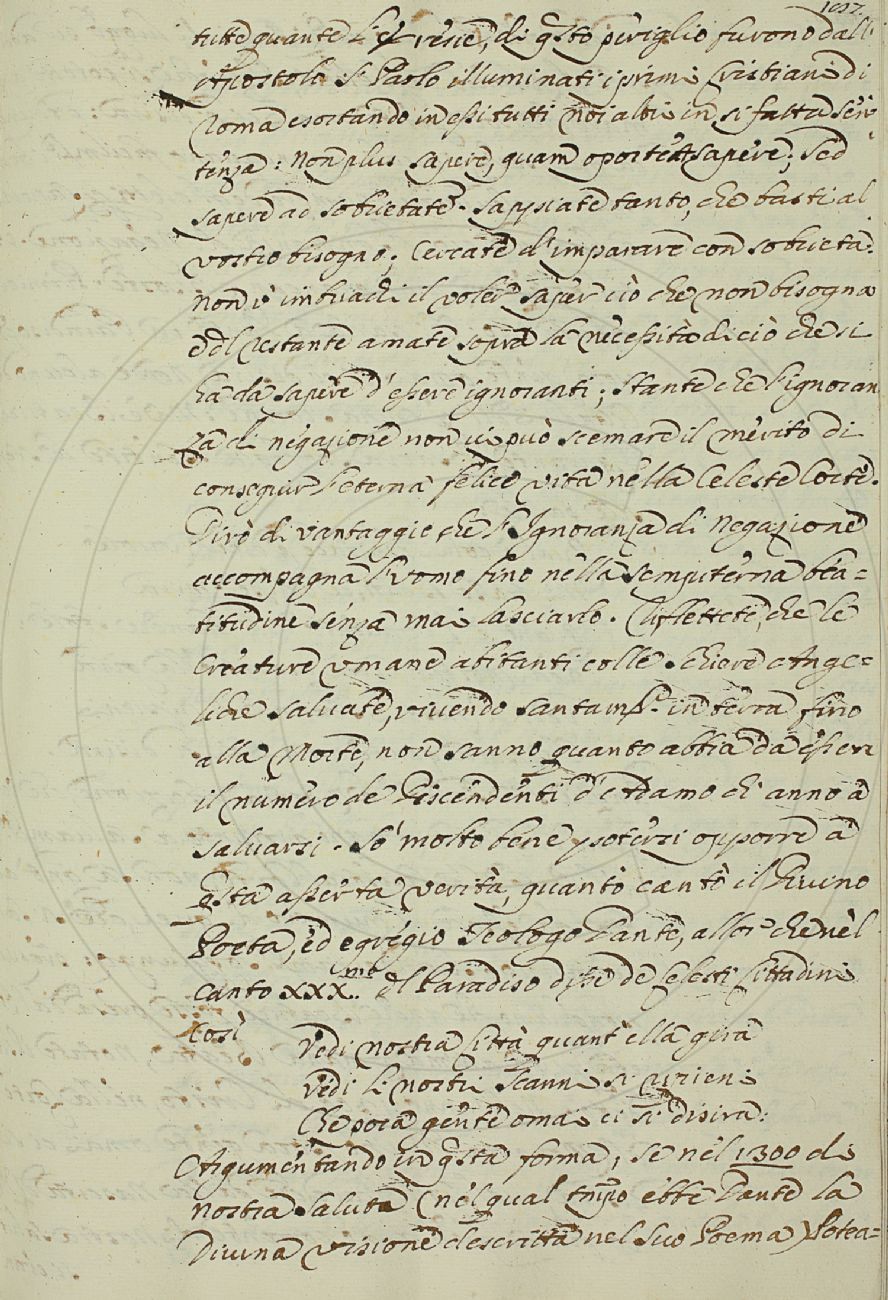 1037.
tutte quante l'eresie, di q̃sto periglio furono dall'
Apostolo S. Paolo illuminati i primi Cristiani di
Roma esortando in essi tutti noi altri in si fatta sen-
tenza: Non plus sapere, quam oportet sapere; sed
sapere ad sobrietatem. Sappiate tanto, che basti al
vostro bisogno; Cercate d'imparare con sobrietà.
Non v'imbriachi il voler saper ciò che non bisogna
e del restante amate sopra la necessità di ciò che si
ha da sapere d'essere ignoranti; Stante che l'ignoran
za di negazione non vi può scemare il merito di
conseguir l'eterna felice vita nella Celeste Corte.
Dirò di vantaggio che l'Ignoranza di Negazione
accompagna l'uomo fino nella sempiterna bea=
titudine senza mai lasciarlo. Riflettete, che le
Creature umane abitanti colle schiere Ange=
liche salvate, vivendo santamte. in terra fino
alla Morte, non sanno quanto abbia da essere
il numero de Discendenti d'Adamo ch'anno a
salvarsi. So' molto bene potersi opporre a
q̃sta asserta verità, quantò cantò il Divino
Poeta, ed egregio Teologo Dante, allor che nel
canto XXX.mo del Paradiso disse de Celesti Cittadini
Così
Vedi nostra Città quant'ella gira
Vedi li nostri Scanni si ripieni
Che poca gente omai ci si disira:
Argumentando in q̃sta forma; se nel 1300 di
nostra Salute (nel qual tmpo ebbe Dante la
Divina visione descritta nel suo Poema) Potea=